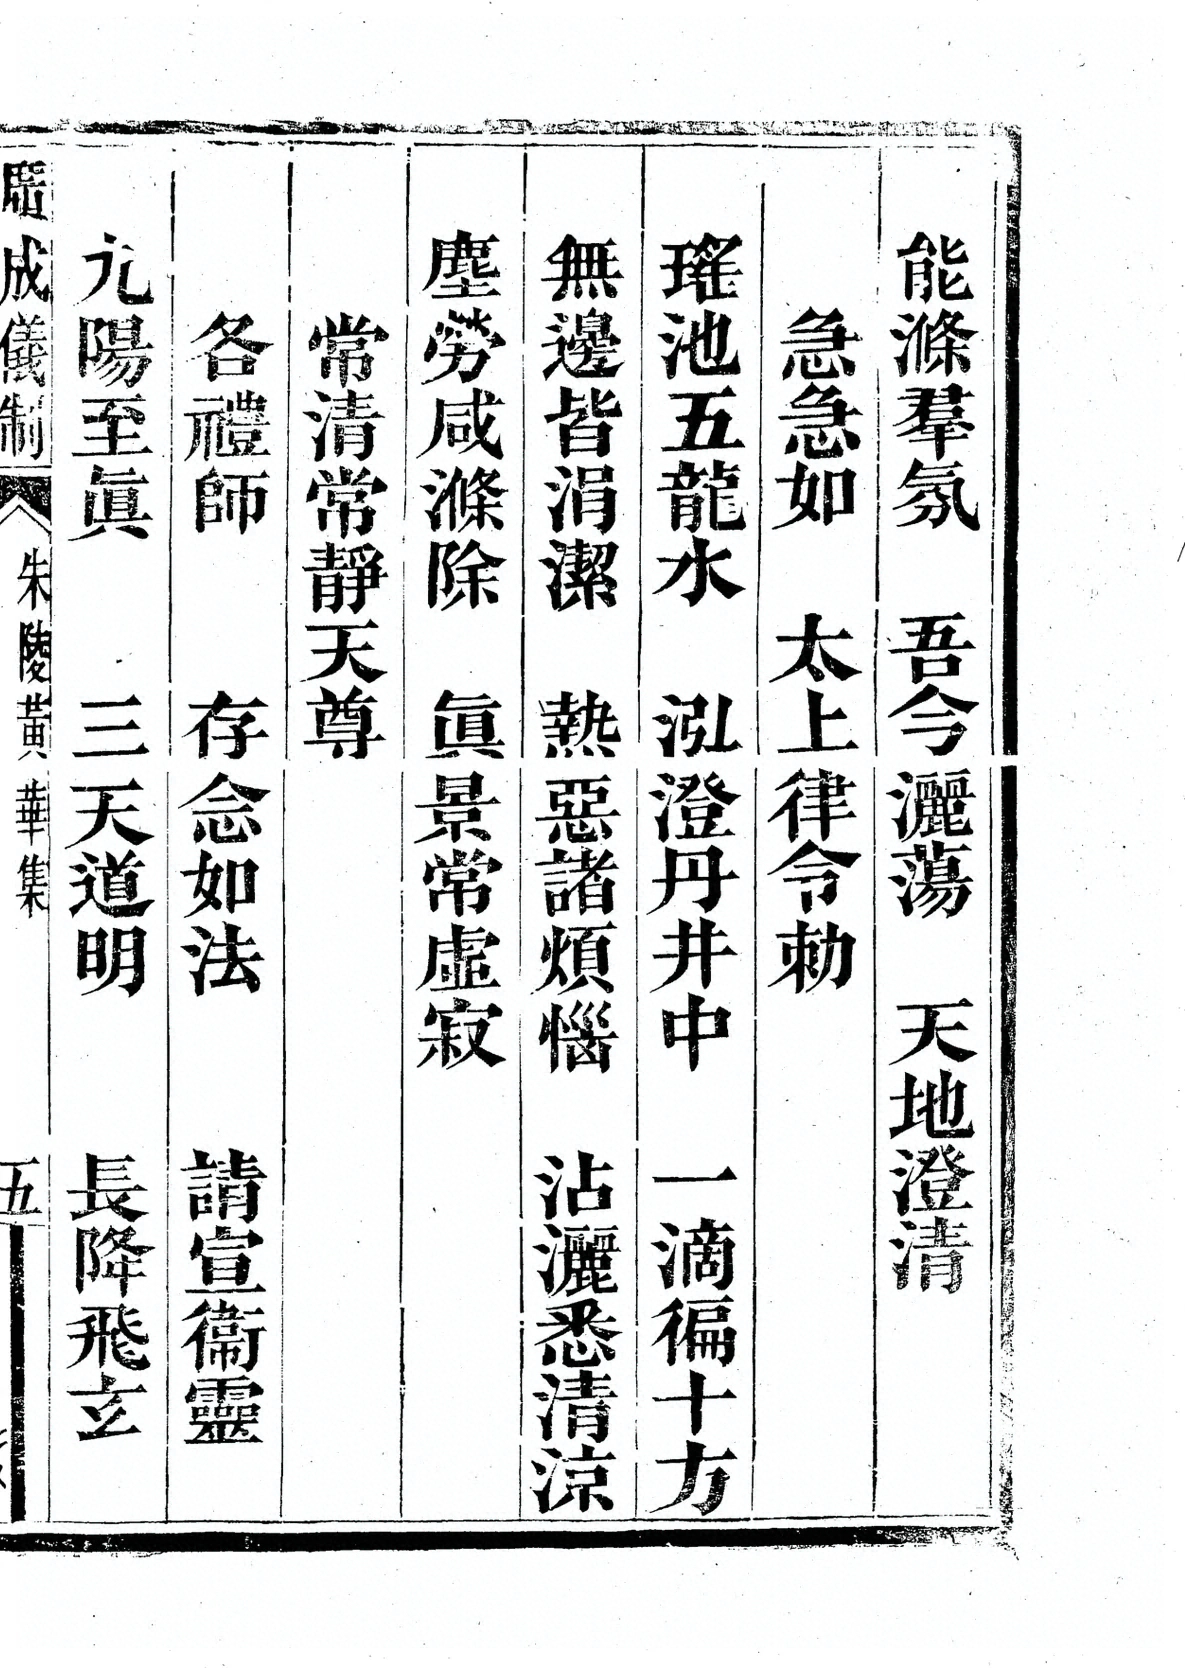 能滌羣氛　吾今灑蕩　天地澄清
急急如　太上律令勅
瑤池五龍水　泓澄丹井中　一滴徧十方
無邊皆涓潔　熱惡諸煩惱　沾灑悉清涼
塵勞咸滌除　眞景常虛寂
常清常靜天尊
各禮師　存念如法　請宣衞靈
元陽至眞　三天道明　長降飛玄
廣成儀制　朱陵黃華集　五